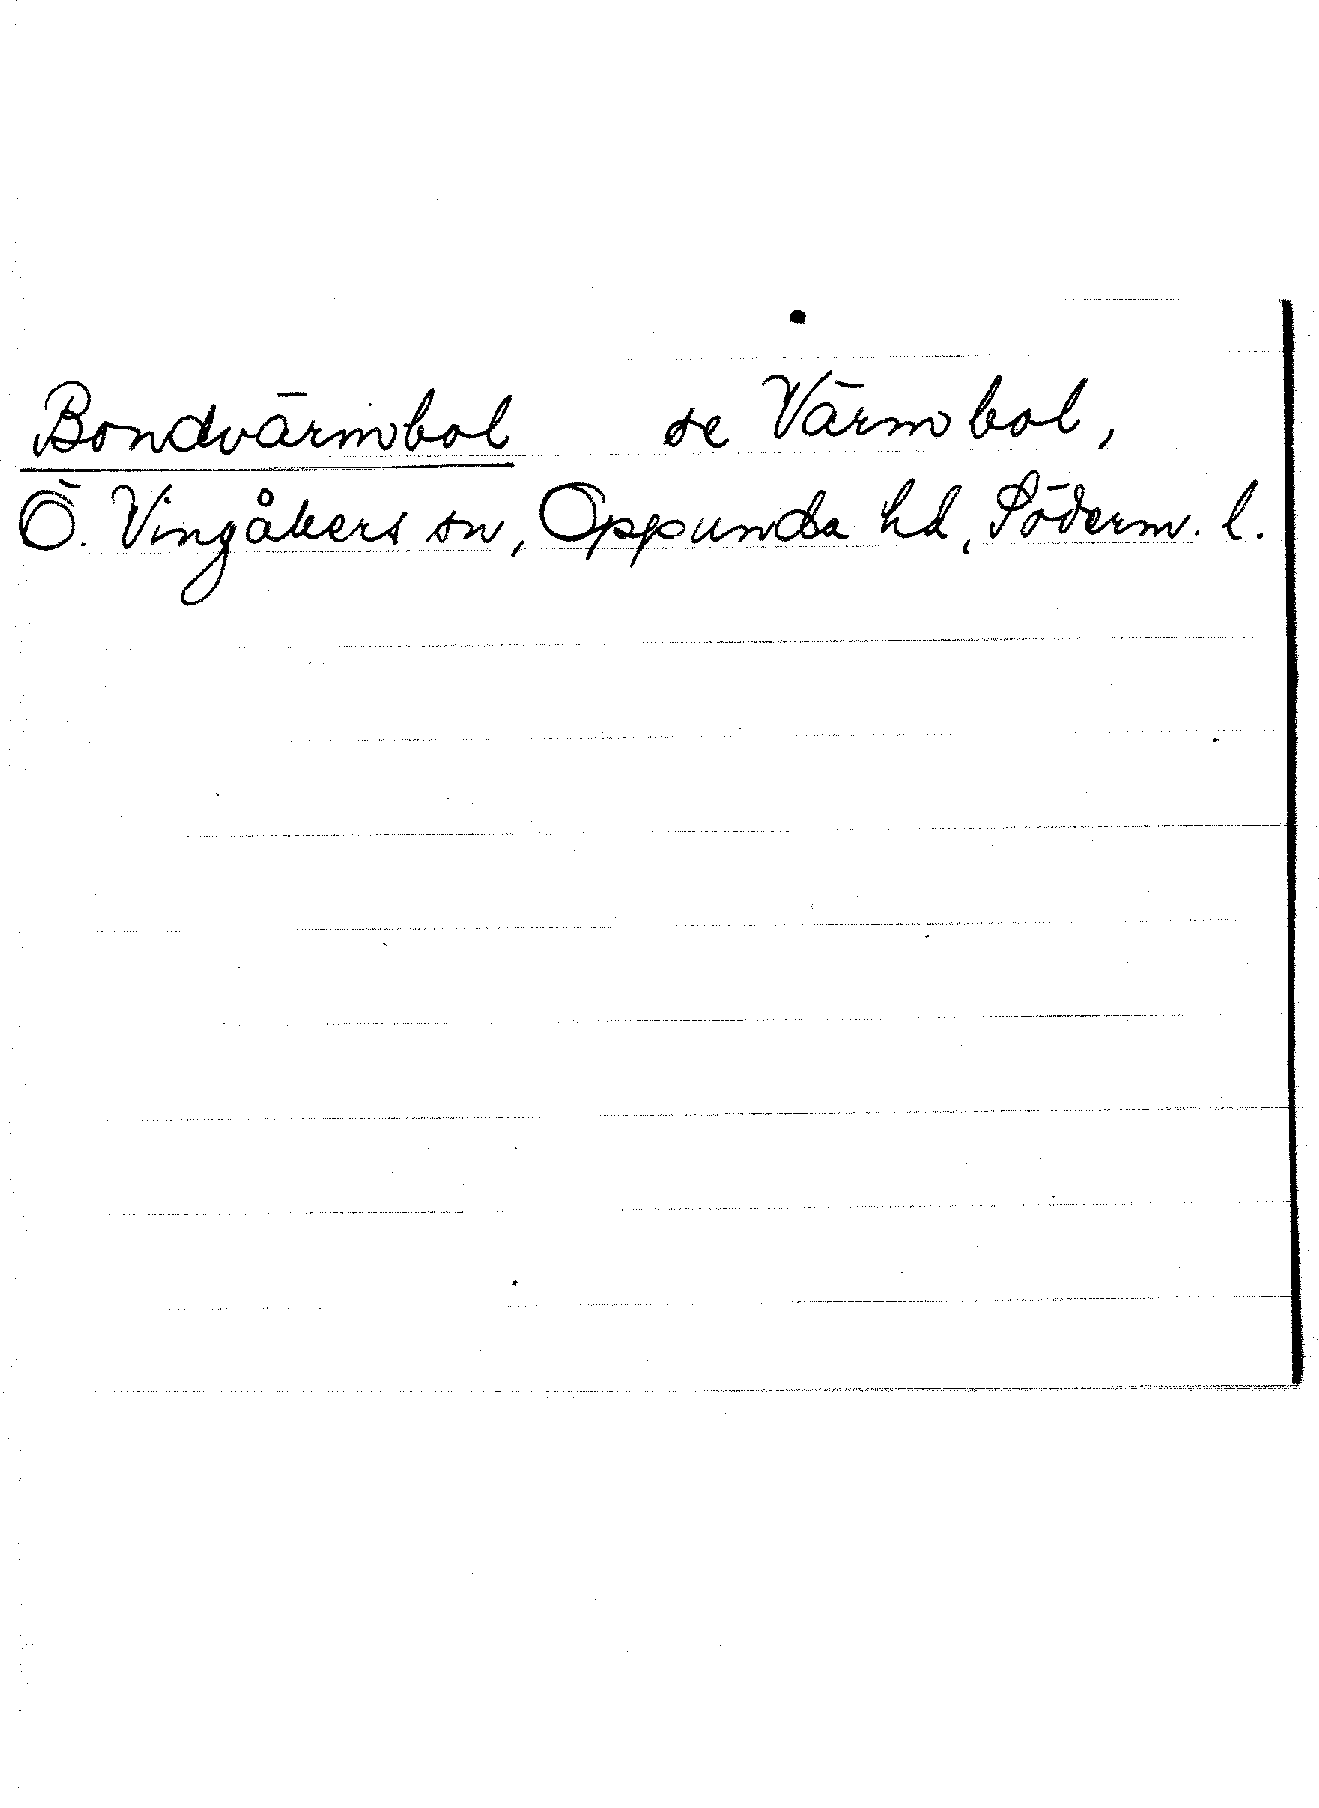 Bondvärmbol se Värmbol,
Ö. Vingåkers sn, Oppunda hd, Söderm. l.